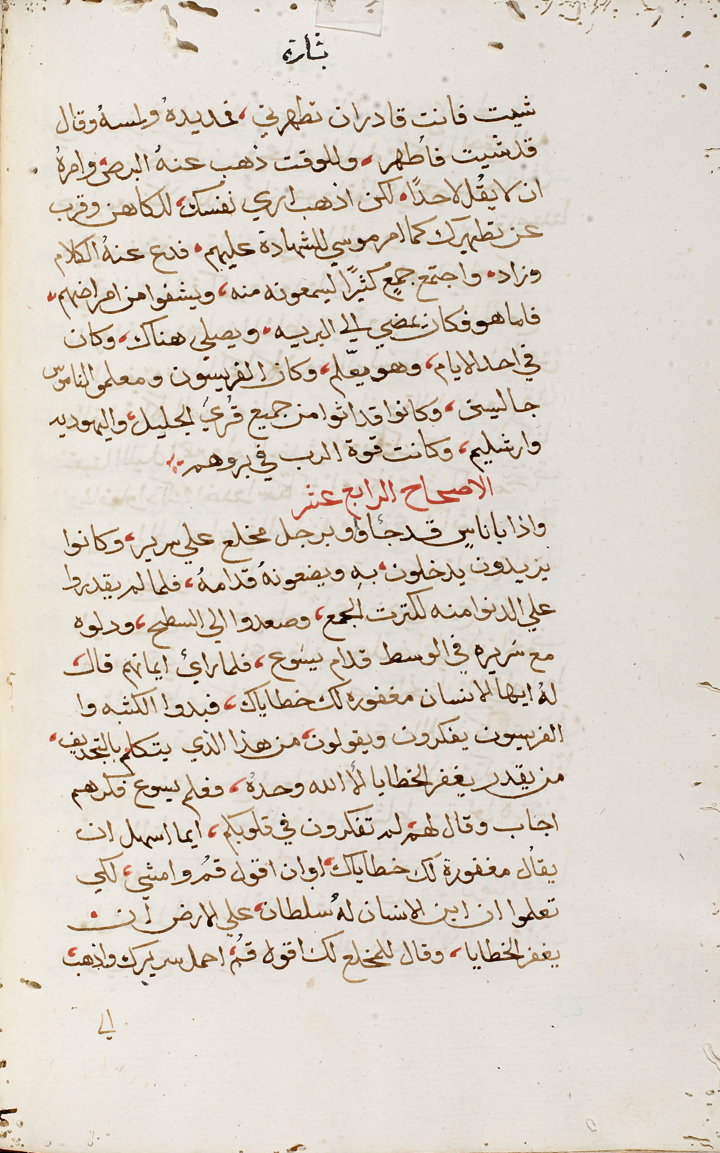 بشارة
شيت فانت قادر ان تطهرني، فمد يده ولمسه وقال
قد شيت فاطهر، وللوقت ذهب عنه البرص وامره
ان لا يقل لاحدًا، لكن اذهب اري نفسك للكاهن وقرب
عن تطهيرك كما امر موسي للشهادة عليهم، فدع عنه الكلام
وزاد، واجتمع جمع كثيرًا ليسمعونه منه، ويشفوا من امراضهم،
فاما هو فكان يمضي الي البريه، ويصلي هناك، وكان
في احد الايام، وهو يعّلم، وكان الفريسون ومعلموا الناموس
جالسين، وكانوا قد اتوا من جميع قُري الجليل، واليهوديه
وارشليم، وكانت قوة الرب في بروهم
الاصحاح الرابع عشر
واذا باناس قد جاؤا وبرجل مخلع علي سرير، وكانوا
يريدون يدخلون به ويضعونه قدامه، فلما لم يقدروا
علي الدنوا منه لكترت الجمع، وصعدوا الي السطح، ودلوه
مع سريره في الوسط قدام يسوع، فلما راي ايمانهم قال
له ايها الانسان مغفورة لك خطاياك، فبدوا الكتبه وا
الفريسون يفكرون ويقولون، من هذا الذي يتكلم بالتجديف،
من يقدر يغفر الخطايا الا الله وحدهُ، فعلم يسوع فكرهم
اجاب وقال لهم، لم تفكرون في قلوبكم، ايما اسهل ان
يقال مغفورة لك خطاياك، اوان اقول قمُ وامشي، لكي
تعلموا ان ابن الانسان لهُ سلطان، علي الارض ان
يغفر الخطايا، وقال للمخلع لك اقول قمُ، احمل سريرك واذهب
الي